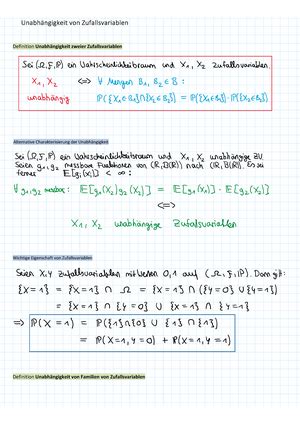 Unabhängigkeit von Zufallsvariablen
Definition Unabhängigkeit zweier Zufallsvariablen
Sei (Ω, F, P) ein Wahrscheinlichkeitsraum und X₁, X₂ Zufallsvariablen.
X₁, X₂ ⇔ ∀ Mengen B₁, B₂ ∈ B :
unabhängig P({X₁∈B₁}∩{X₂∈B₂}) = P({X₁∈B₁})·P({X₂∈B₂})
Alternative Charakterisierung der Unabhängigkeit
Sei (Ω, F, P) ein Wahrscheinlichkeitsraum und X₁, X₂ unabhängige ZV.
Seien g₁, g₂ messbare Funktionen von (R, B(R)) nach (R, B(R)). Es sei
ferner E[g_i(X_i)] < ∞ :
∀ g₁, g₂ messbar : E[g₁(X₁)g₂(X₂)] = E[g₁(X₁)] · E[g₂(X₂)]
⇔
X₁, X₂ unabhängige Zufallsvariablen
Wichtige Eigenschaft von Zufallsvariablen
Seien X, Y Zufallsvariablen mit Werten 0,1 auf (Ω, F, P). Dann gilt:
{X=1} = {X=1} ∩ Ω = {X=1} ∩ ({Y=0} ∪ {Y=1})
= {X=1} ∩ {Y=0} ∪ {X=1} ∩ {Y=1}
⇒ P(X=1) = P({1}∩{0} ∪ {1}∩{1})
= P(X=1, Y=0) + P(X=1, Y=1)
Definition Unabhängigkeit von Familien von Zufallsvariablen